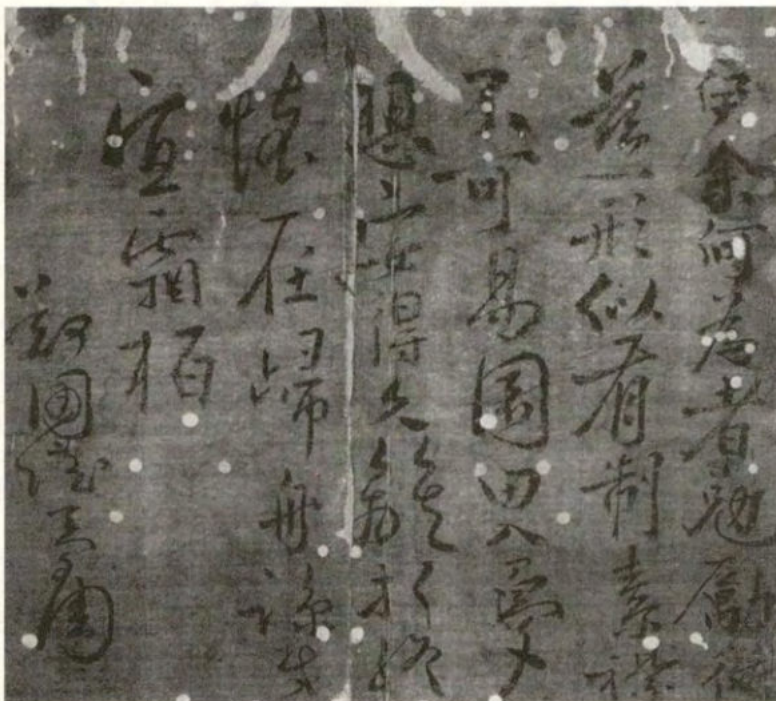 伊余何為者勉勵從
茲一形似有制素襟
不可易園田夢
想得久離析終
懷在歸舟諒哉
宜霜柏
國